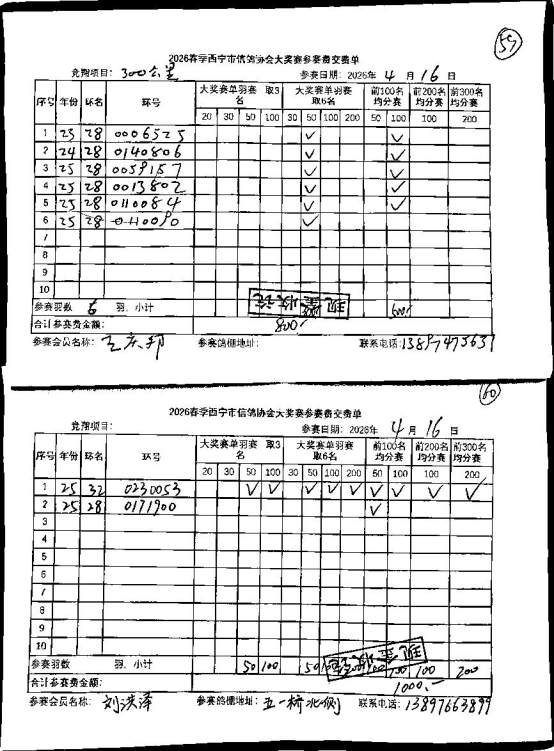 59
2026春季西宁市信鸽协会大奖赛参赛费交费单
竞翔项目: 300公里 参赛日期: 2026年 4 月 16 日
序号 年份 环名 环号 大奖赛单羽赛 取3名 大奖赛单羽赛 取6名 前100名均分赛 前200名均分赛 前300名均分赛
20 30 50 100 30 50 100 200 50 100 100 200
1 25 28 0006525 ✓ ✓
2 24 28 0140806 ✓ ✓
3 25 28 0059157 ✓ ✓
4 25 28 0013802 ✓ ✓
5 25 28 0110084 ✓ ✓
6 25 28 0110090 ✓
7
8
9
10
参赛羽数 6 羽, 小计 500
现金收讫
合计参赛费金额: 800
参赛会员名称: 王庆邦 参赛鸽棚地址: 联系电话: 13897475631
60
2026春季西宁市信鸽协会大奖赛参赛费交费单
竞翔项目: 参赛日期: 2026年 4 月 16 日
序号 年份 环名 环号 大奖赛单羽赛 取3名 大奖赛单羽赛 取6名 前100名均分赛 前200名均分赛 前300名均分赛
20 30 50 100 30 50 100 200 50 100 100 200
1 25 32 0230053 ✓ ✓ ✓ ✓ ✓ ✓ ✓ ✓ ✓
2 25 28 0171900 ✓
3
4
5
6
7
8
9
10
参赛羽数 羽, 小计 50 100 50 100 100 200
现金收讫
合计参赛费金额: 1000.-
参赛会员名称: 刘洪泽 参赛鸽棚地址: 五一桥北侧 联系电话: 13897663899